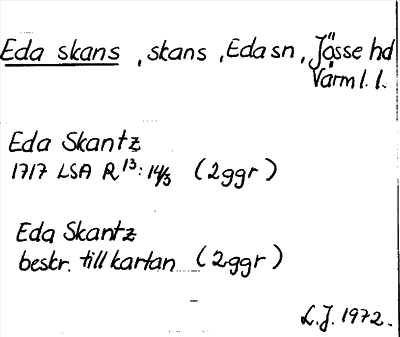 Eda skans, skans, Eda sn, Jösse hd
Värml. l.
Eda Skantz
1717 LSA R 13: 14/3 (2ggr)
Eda Skantz
beskr. till kartan (2ggr)
L.J. 1972.